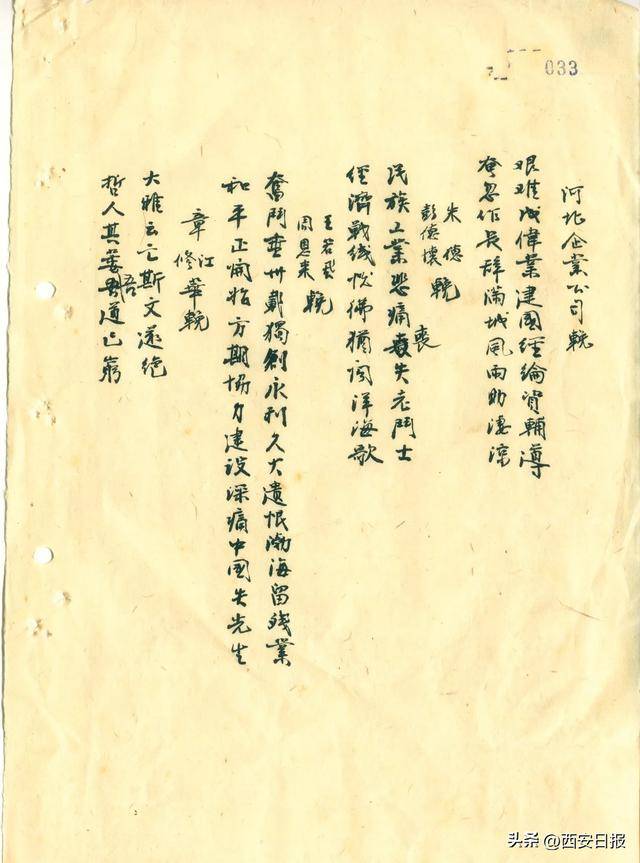 033
河北企業公司輓
艰难成偉業建國經綸資輔導
奄忽作長辞滿城風雨助凄涼
朱德
彭德懷 輓
民族工業悲痛喪失老鬥士
經濟戰线恍佛猶闻洋海歌
王若飛
周恩来 輓
奮鬥垂卅載獨創永利久大遺恨渤海留残業
和平正開始方期協力建设深痛中國失先生
章江修華輓
大雅云亡斯文遂绝
哲人其萎吾道已窮
头条 @西安日报